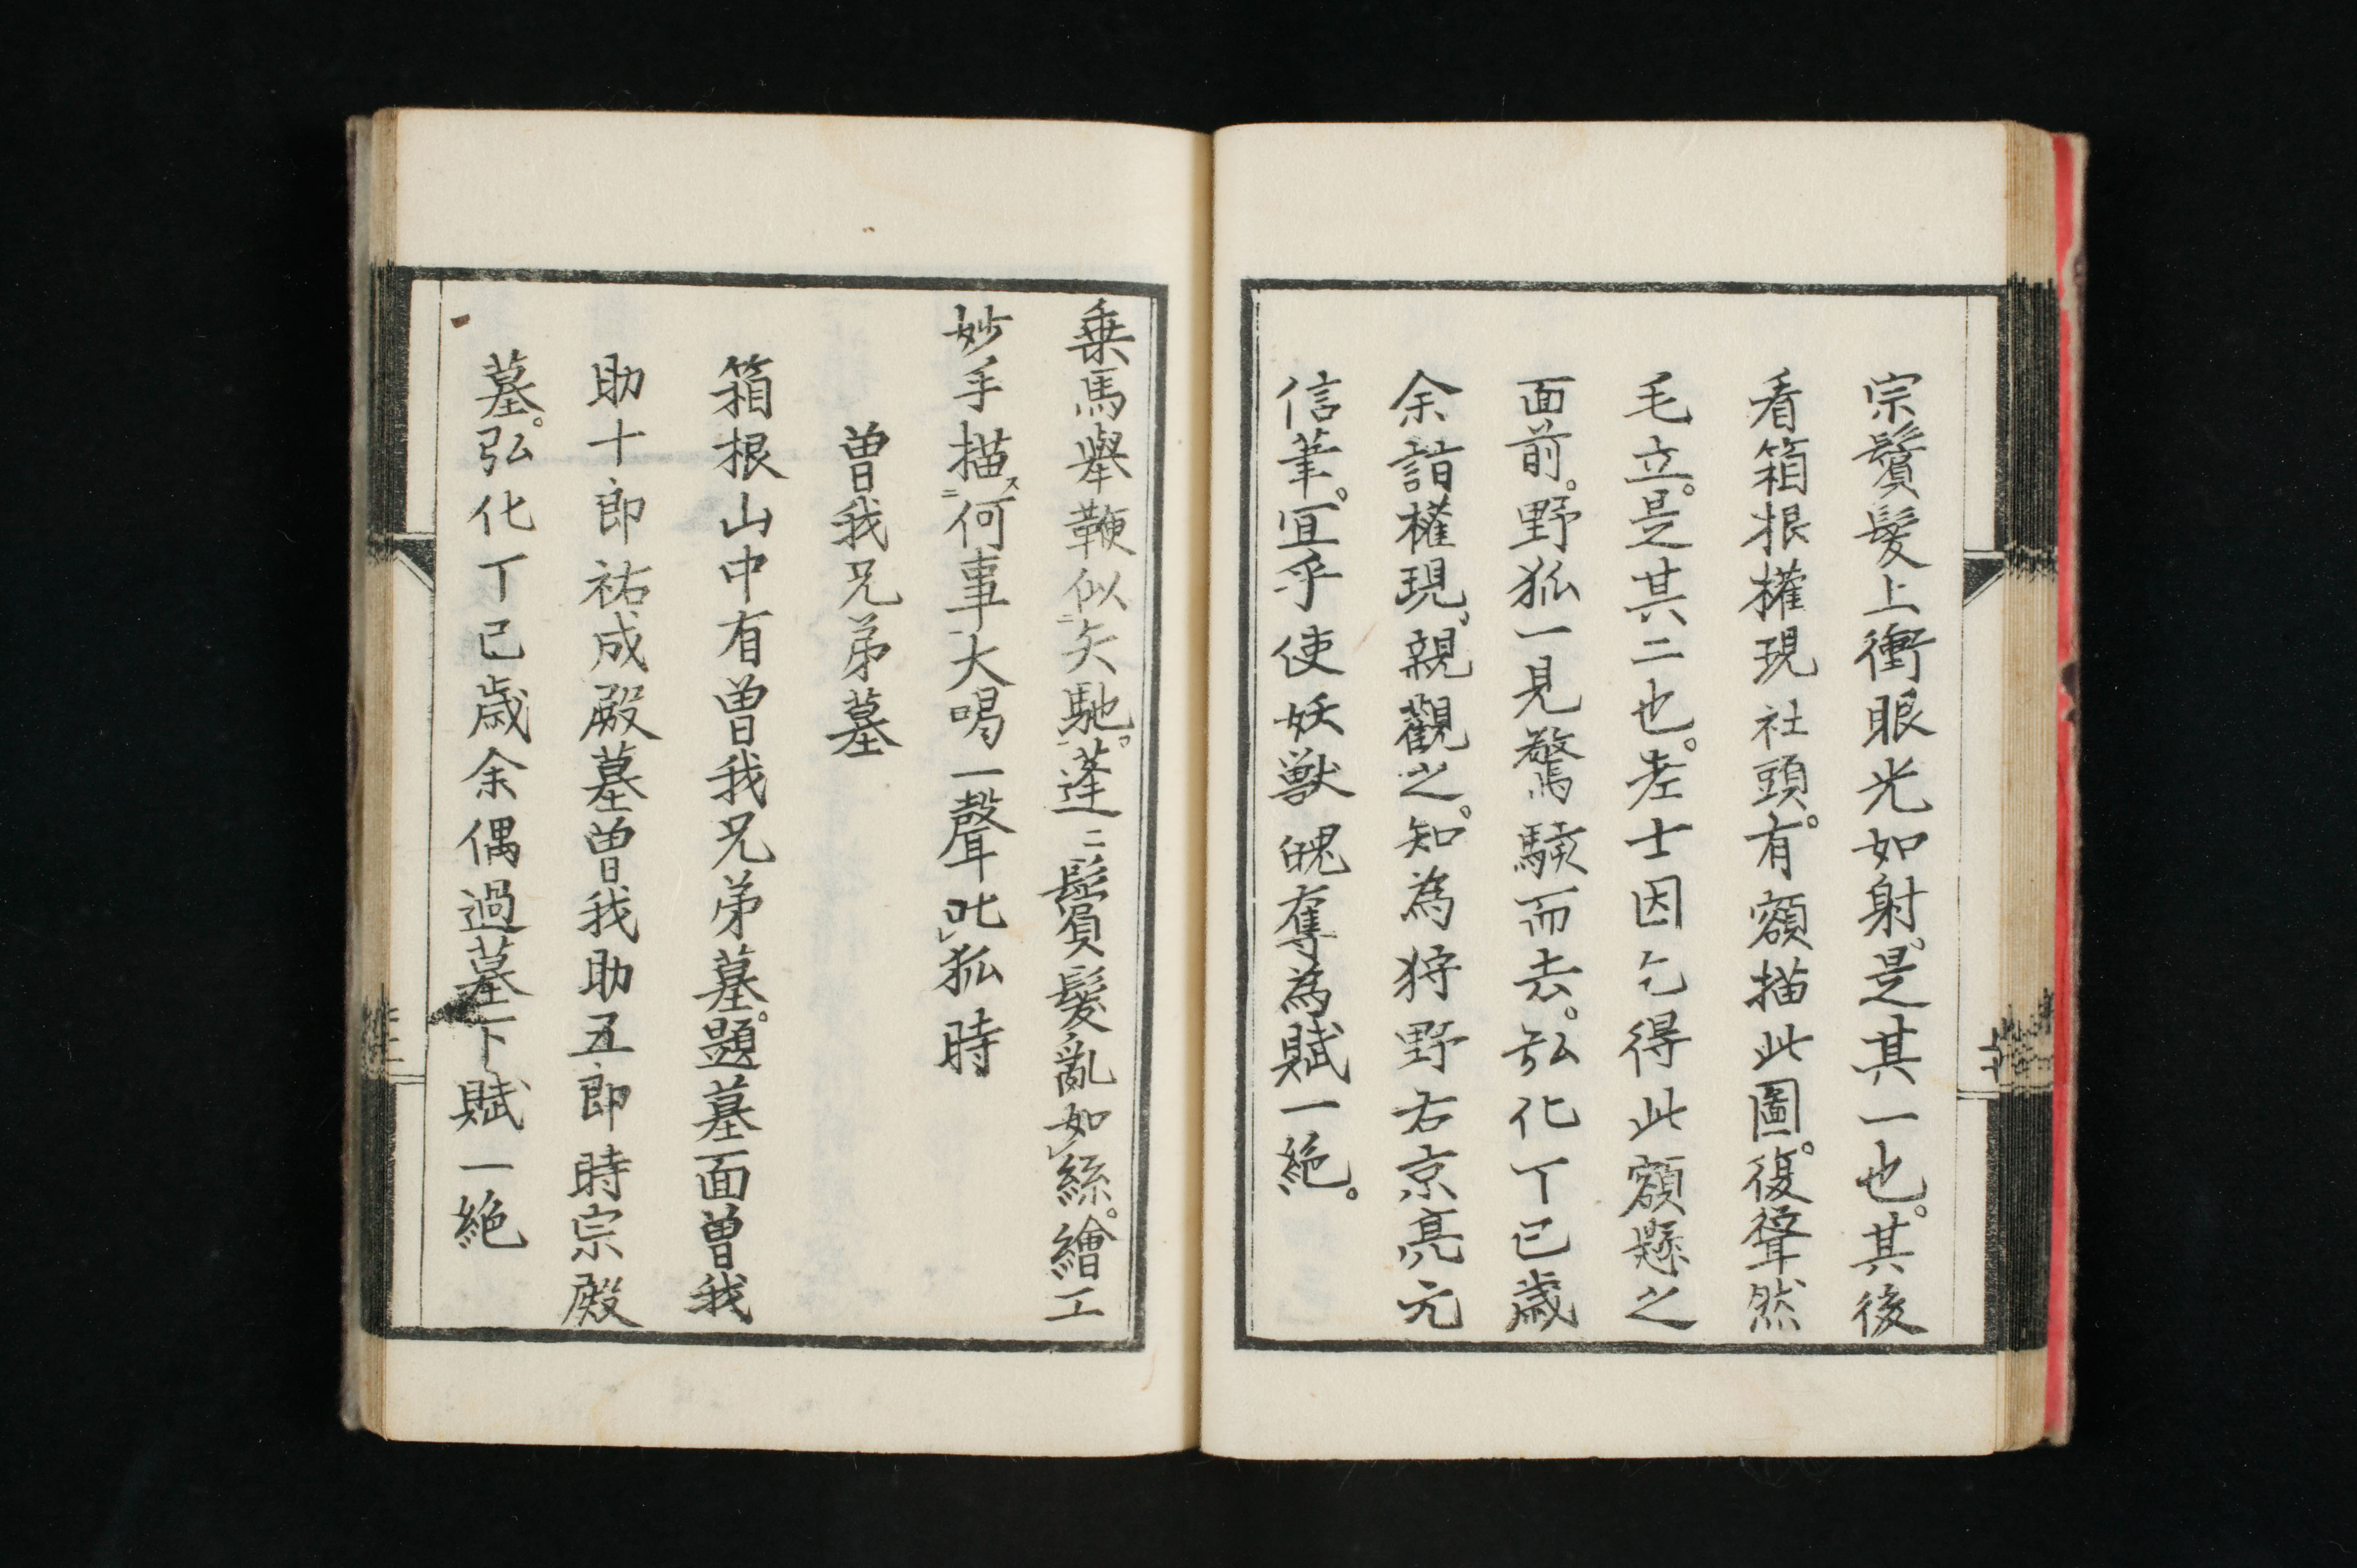 宗鬢髮上衝眼光如射。是其一也。其後
看箱根權現社頭。有額描此圖。復聳然
毛立。是其二也。老士因乞得此額懸之
面前。野狐一見驚駭而去。弘化丁巳歲
余詣權現、親觀之。知為狩野右京亮元
信筆。宜乎使妖獸魄奪為賦一絶。
乗馬舉鞭似矢馳。蓬〻鬢髮亂如絲。繪工
妙手描何事大喝一聲叱狐時
曽我兄弟墓
箱根山中有曽我兄弟墓。題墓面曽我
助十郎祐成殿墓曽我助五郎時宗殿
墓。弘化丁巳歲余偶過墓下賦一絶